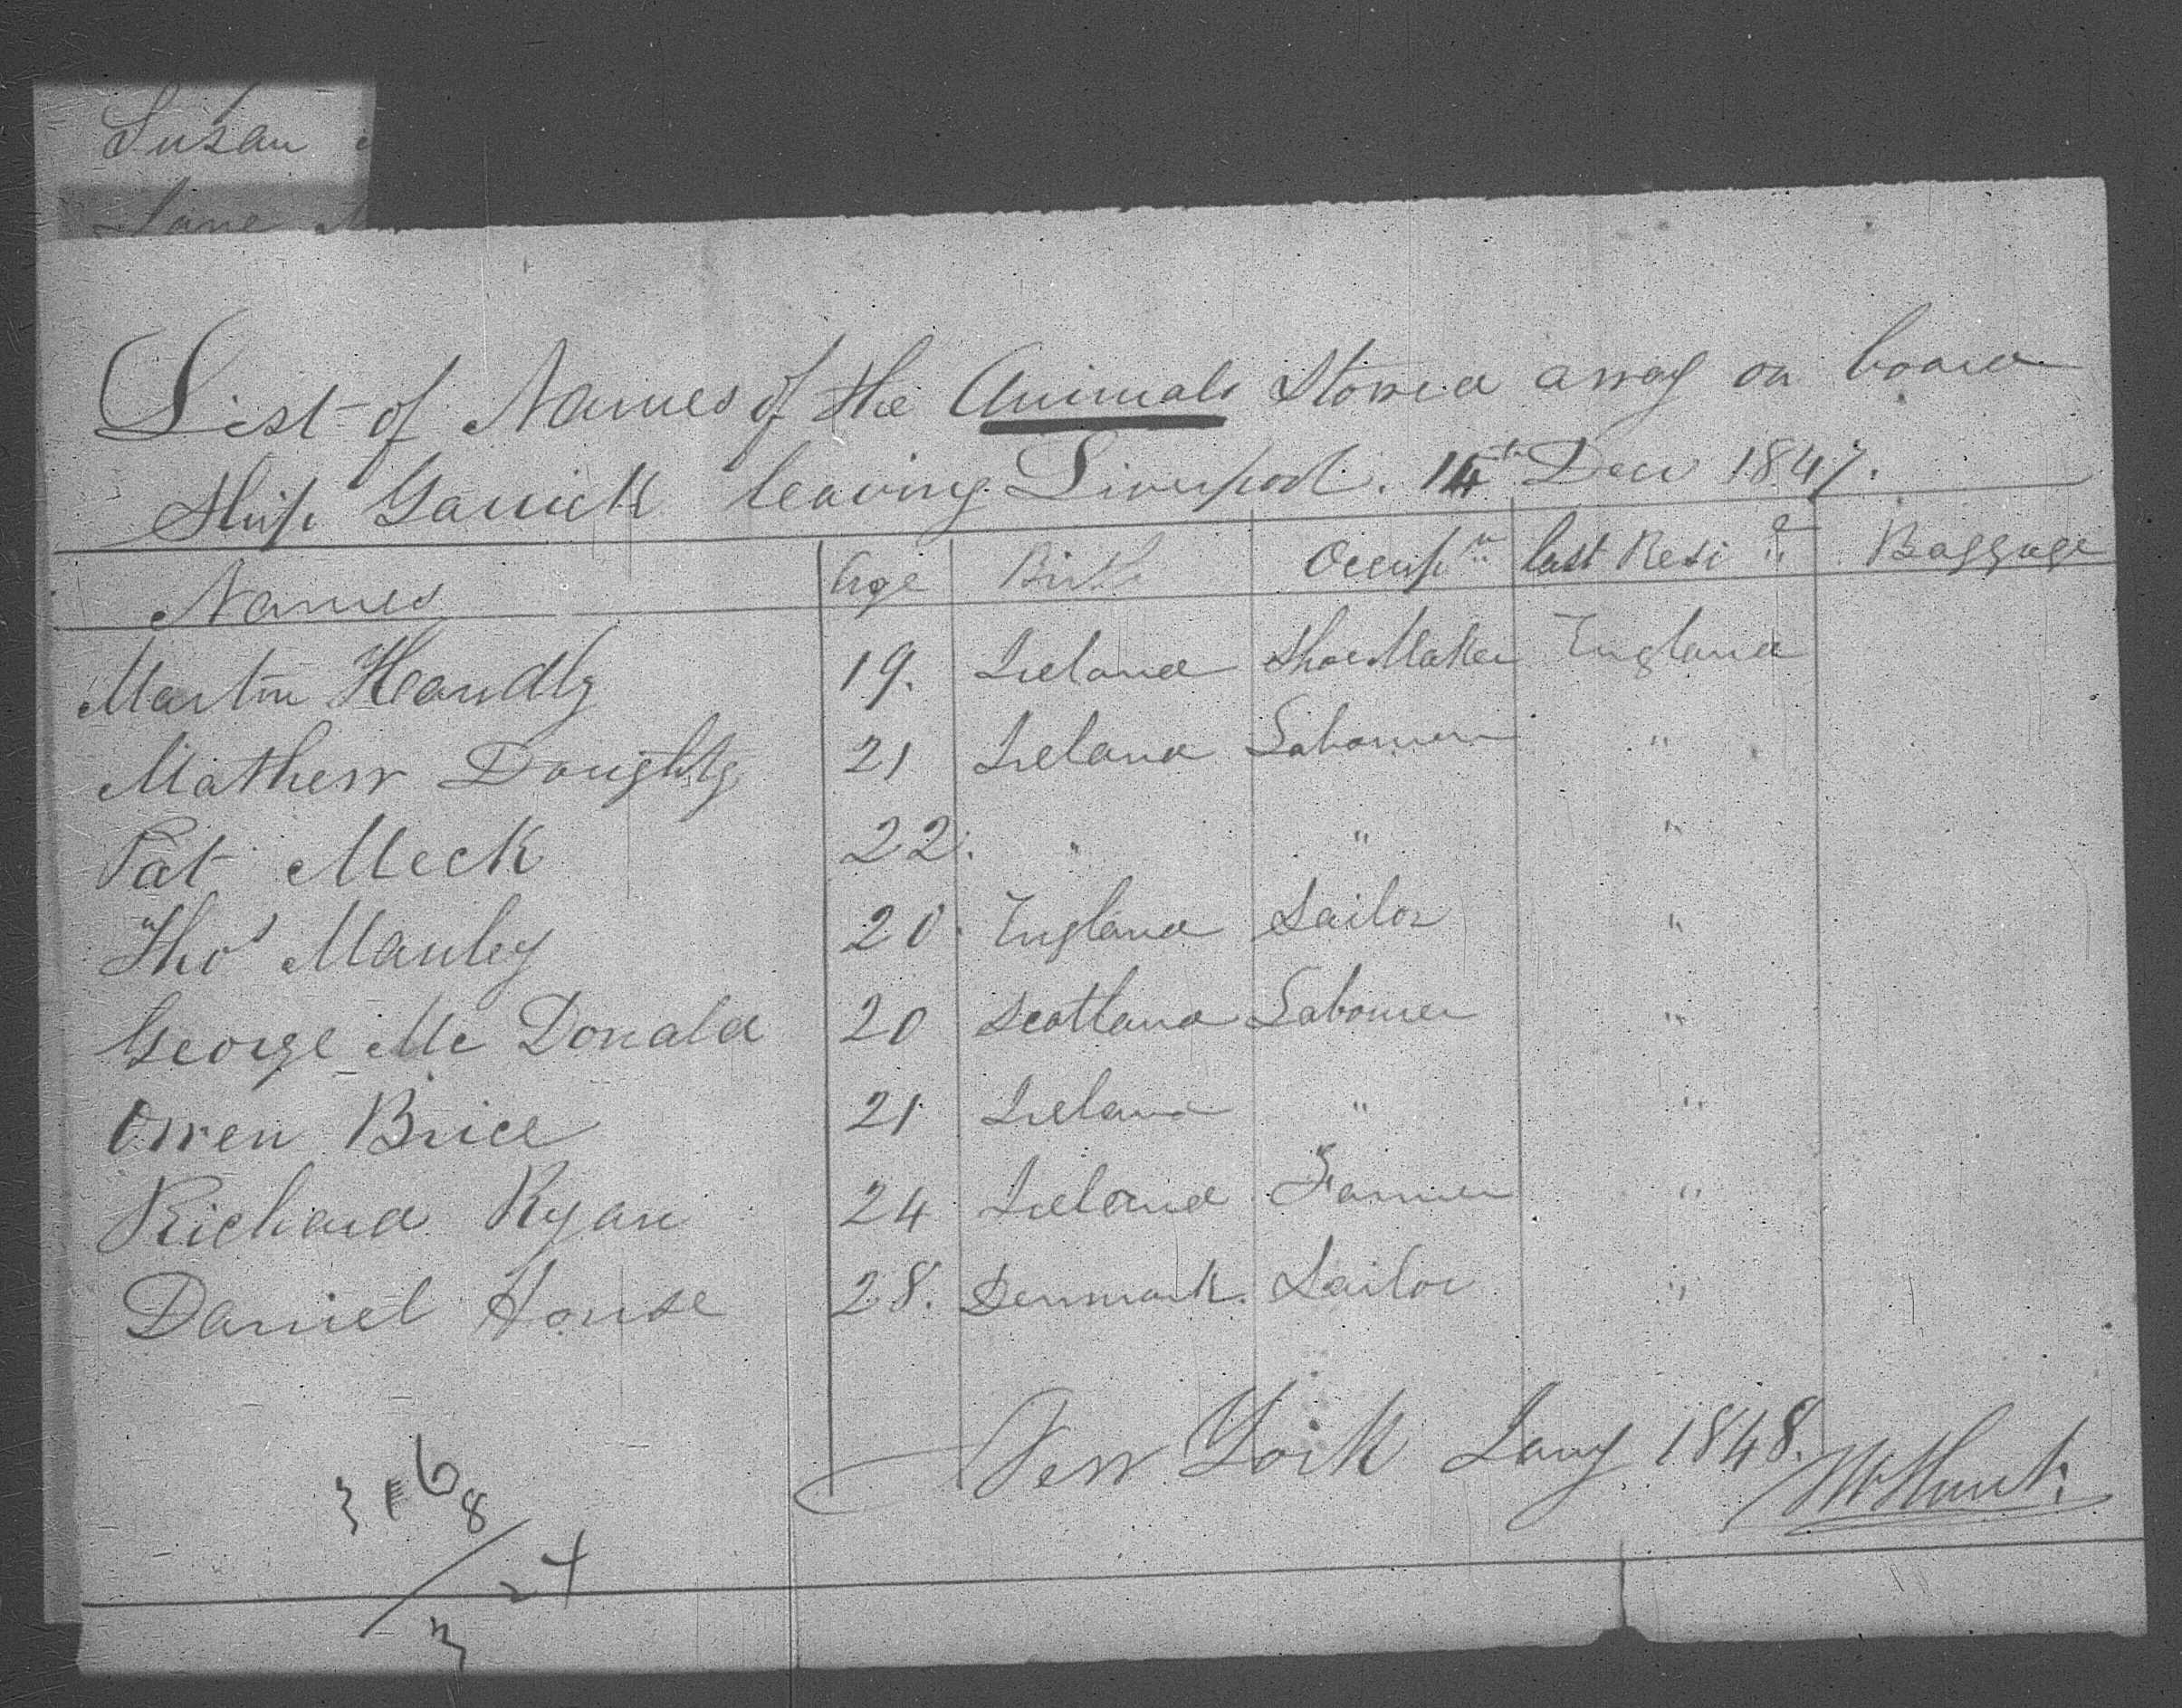 Susan
Jane M
List of Names of the Animals Stowed away on board
Ship Garrick leaving Liverpool. 14th Decr 1847.
Names Age Birth Occupn last Resie Baggage
Martin Handly 19. Ireland Shoe Maker England
Mathew Doughty 21 Ireland Labourer "
Pat Meek 22. " " "
Thos Manley 20. England Sailor "
George Mc Donald 20 Scotland Labourer "
Owen Brice 21 Ireland " "
Richard Ryan 24 Ireland Farmer "
Daniel House 28. Denmark. Sailor "
New York Jany 1848. Hunt.
8
3